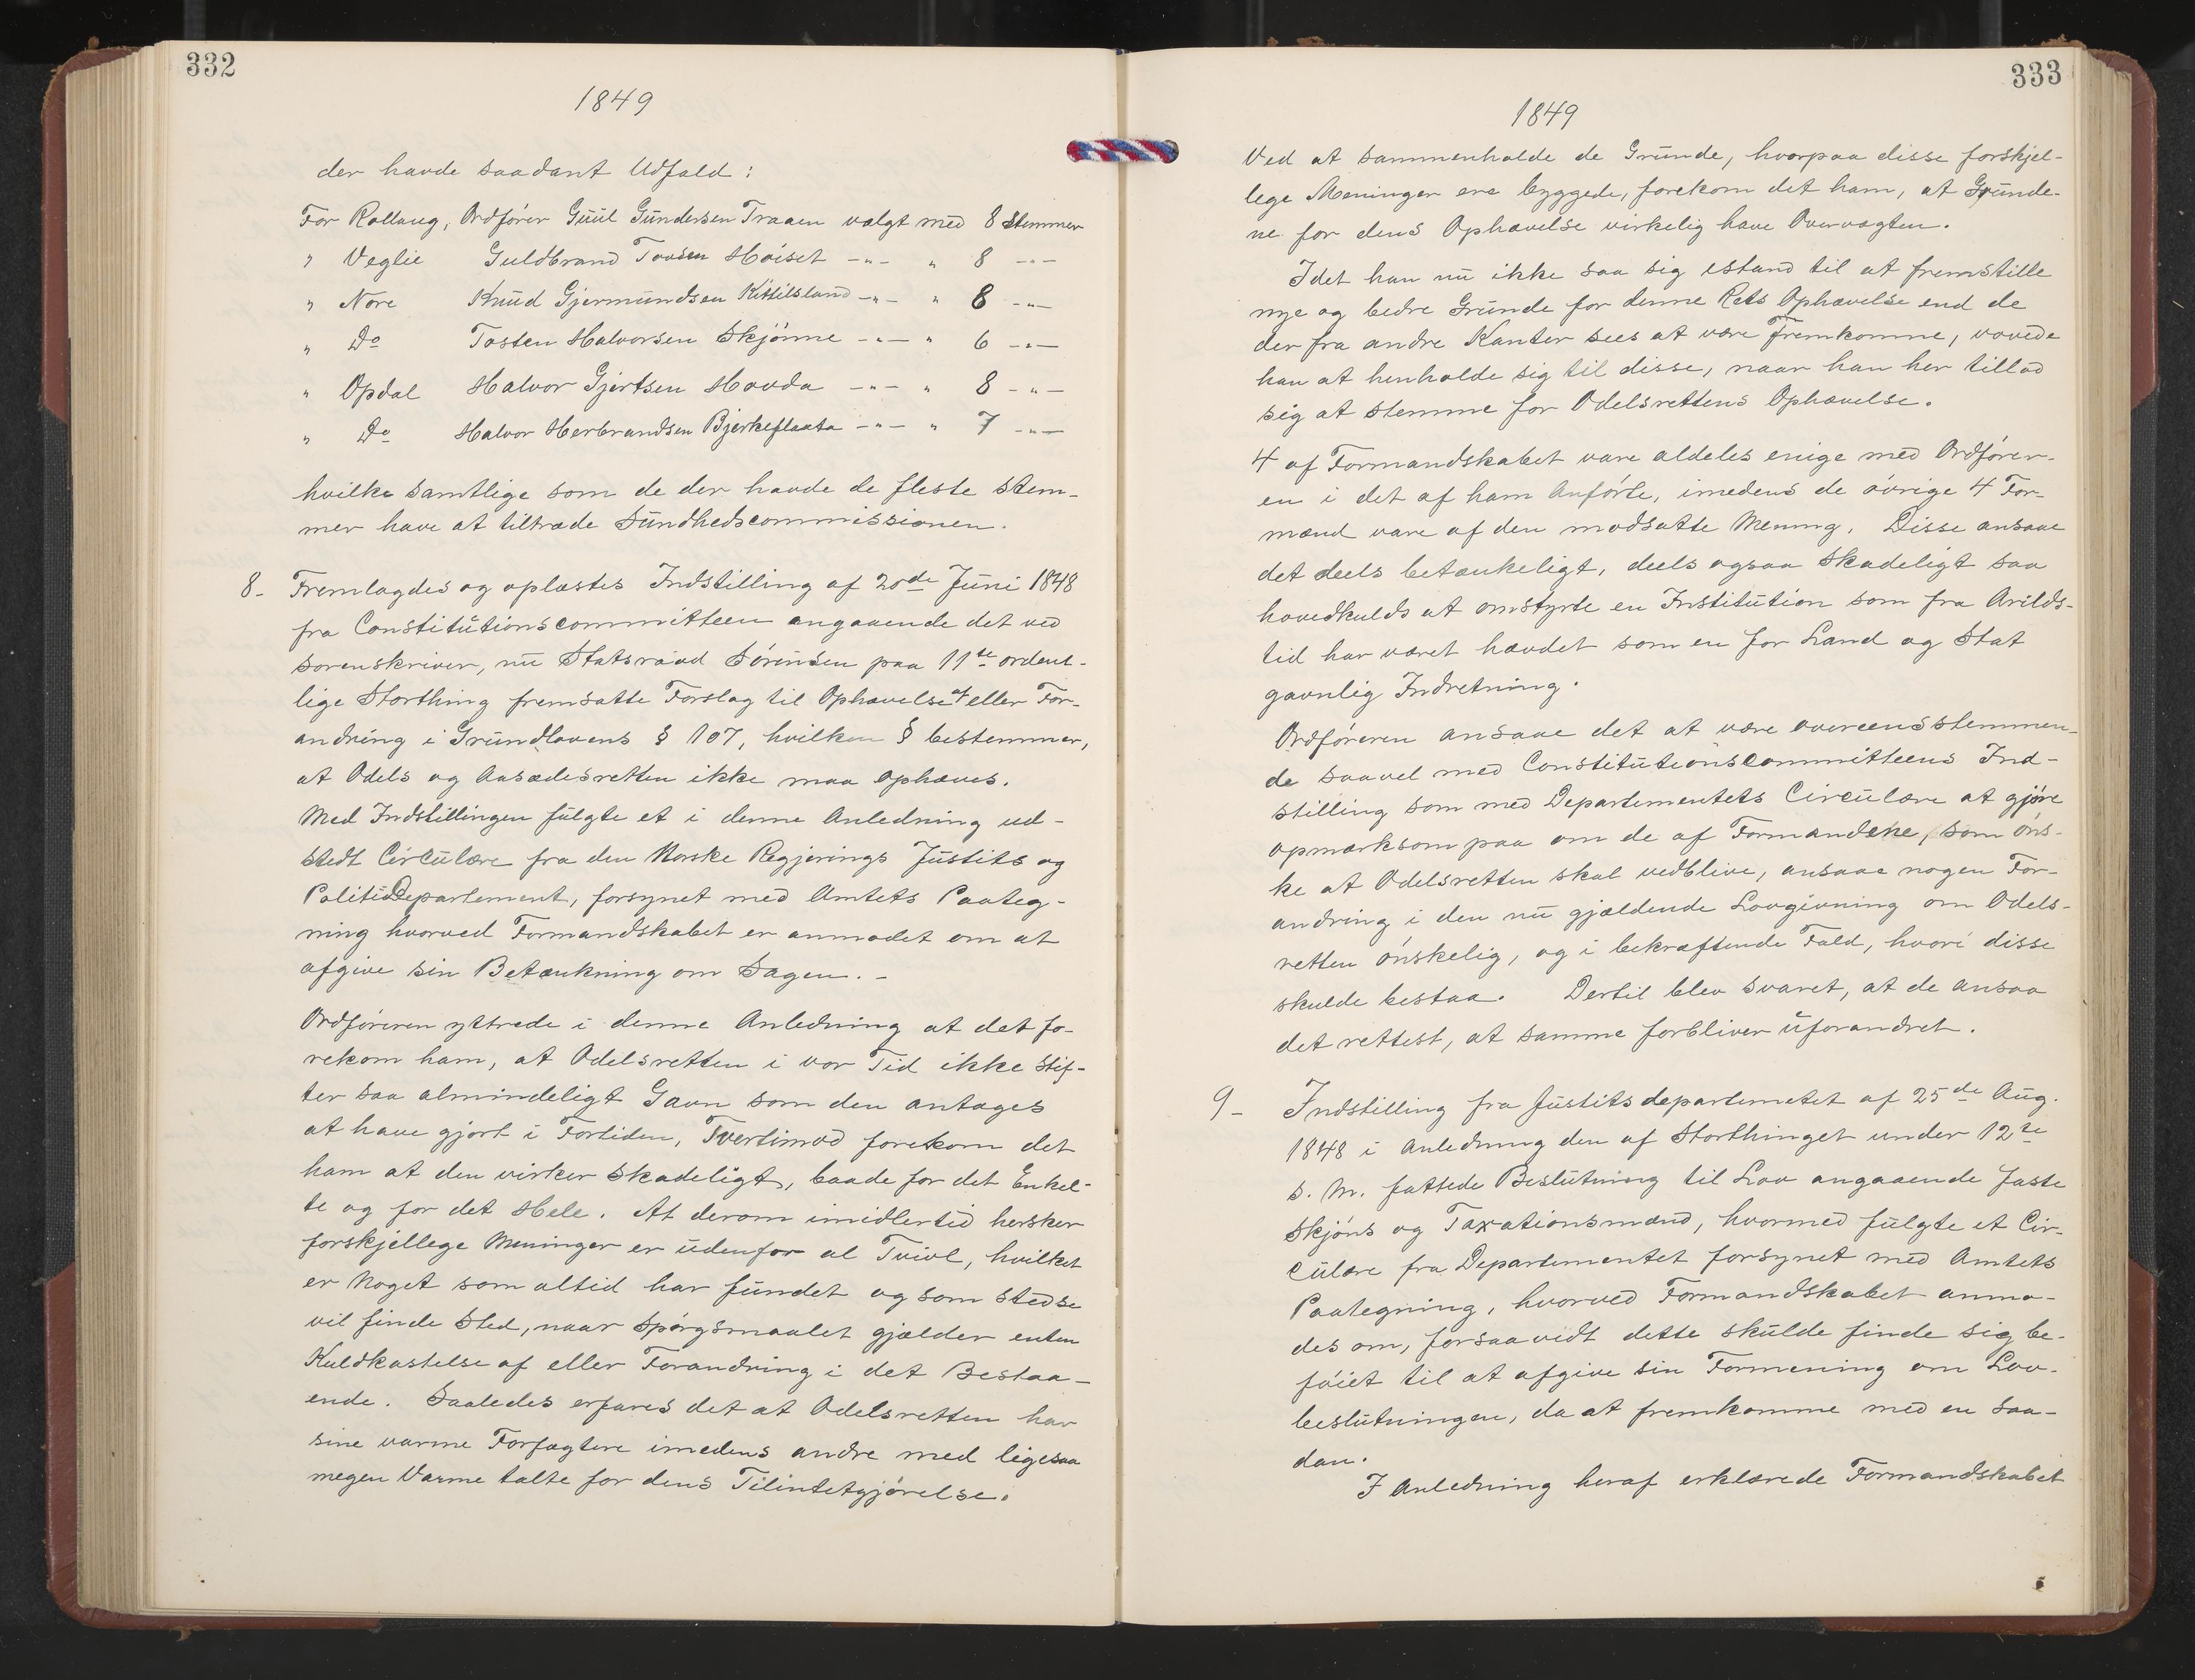 332
1849
der havde saadant Udfald:
For Rollaug, Ordfører Guul Gundersen Traaen valgt med 8 Stemmer
" Veglie Guldbrand Tovsen Høiset -"- " 8 -"-
" Nore Knud Gjermundsen Kittilsland -"- " 8 -"-
" Do Tosten Halvorsen Skjønne -"- " 6 -"-
" Opdal Halvor Gjertsen Hovda -"- " 8 -"-
" Do Halvor Herbrandsen Bjerkeflaata -"- " 7 -"-
hvilke samtlige som de der havde de fleste Stem-
mer have at tiltræde Sundhedscommissionen.
8- Fremlagdes og oplæstes Indstilling af 20de Juni 1848
fra Constitutionscommitteen angaaende det ved
Sorenskriver, nu Statsraad Sørensen paa 11te ordent-
lige Storthing fremsatte Forslag til Ophævelse af eller For-
andring i Grundlovens § 107, hvilken § bestemmer,
at Odels og Aasædesretten ikke maa ophæves.
Med Indstillingen fulgte et i denne Anledning ud-
stedt Circulære fra den Norske Regjerings Justits og
PolitieDepartement, forsynet med Amtets Paateg-
ning hvorved Formandskabet er anmodet om at
afgive sin Betænkning om Sagen. -
Ordføreren yttrede i denne Anledning at det fo-
rekom ham, at Odelsretten i vor Tid ikke stif-
ter saa almindeligt Gavn som den antages
at have gjort i Fortiden, Tvertimod forekom det
ham at den virker skadeligt, baade for det Enkel-
te og for det Hele. At derom imidlertid hersker
forskjellege Meninger er udenfor al Tvivl, hvilket
er Noget som altid har fundet og som stedse
vil finde Sted, naar Spørgsmaalet gjælder enten
Kuldkastelse af eller Forandring i det Bestaa-
ende. Saaledes erfares det at Odelsretten har
sine varme Forfægtere imedens andre med ligesaa
megen Varme talte for dens Tilintetgjørelse.
333
1849
Ved at sammenholde de Grunde, hvorpaa disse forskjel-
lege Meninger ere byggede, forekom det ham, at Grunde-
ne for dens Ophævelse virkelig have Overvægten.
Idet han nu ikke saa sig istand til at fremstille
nye og bedre Grunde for denne Rets Ophævelse end de
der fra andre Kanter sees at være fremkomne, vovede
han at henholde sig til disse, naar han her tillod
sig at stemme for Odelsrettens Ophævelse.
4 af Formandskabet vare aldeles enige med Ordfører-
en i det af ham Anførte, imedens de øvrige 4 For-
mænd vare af den modsatte Mening. Disse ansaae
det deels betænkeligt, deels ogsaa skadeligt saa
hovedkulds at omstyrte en Institution som fra Arilds-
tid har været hævdet som en for Land og Stat
gavnlig Indretning.
Ordføreren ansaae det at være overeensstemmen-
de saavel med Constitutionscommitteens Ind-
stilling som med Departementets Circulære at gjøre
opmærksom paa om de af Formændene, som øns-
ke at Odelsretten skal vedblive, ansaae nogen For-
andring i den nu gjældende Lovgivning om Odels-
retten ønskelig, og i bekræftende Fald, hvori disse
skulde bestaa. Dertil blev svaret, at de ansaa
det rettest, at samme forbliver uforandret.
9- Indstilling fra Justitsdepartemetet af 25de Aug.
1848 i Anledning den af Storthinget under 12te
s. M. fattede Beslutning til Lov angaaende faste
Skjøns og Taxationsmænd, hvormed fulgte et Cir-
culære fra Departementet forsynet med Amtets
Paategning, hvorved Formandskabet anmo-
des om, forsaavidt dette skulde finde sig be-
føiet til at afgive sin Formening om Lov-
beslutningen, da at fremkomme med en saa-
dan.
I Anledning heraf erklærede Formandskabet